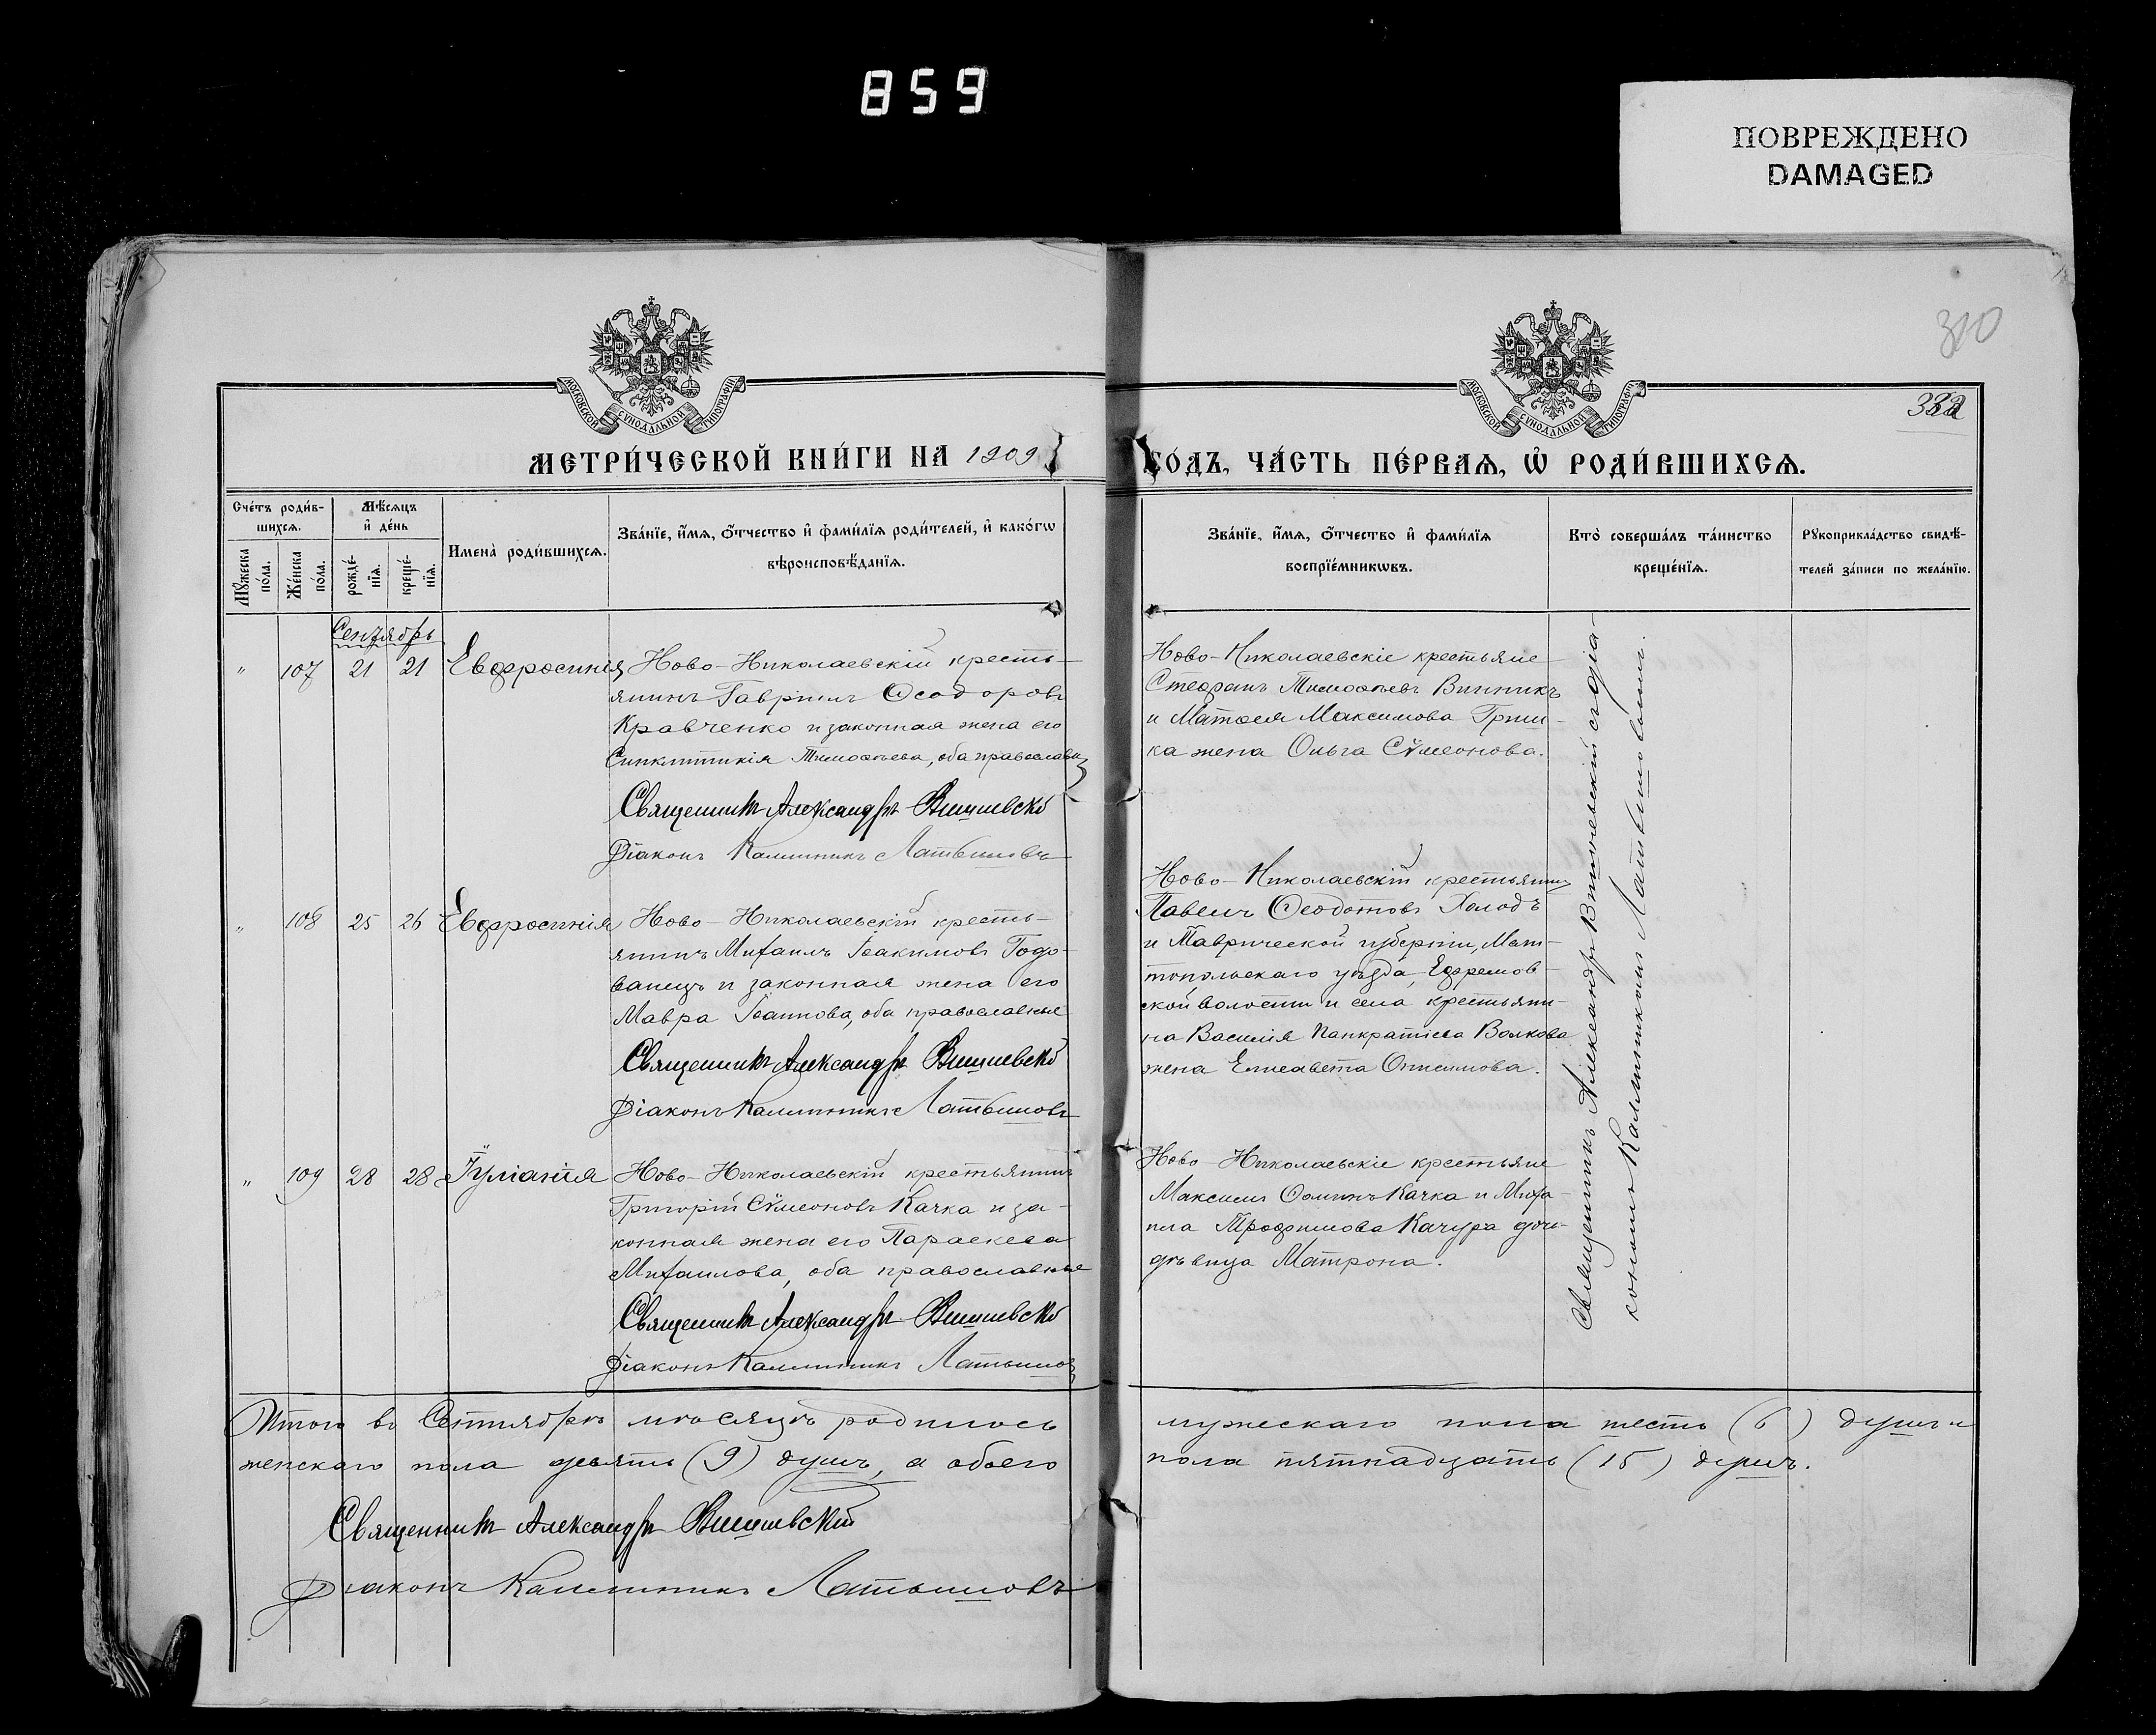 859
ПОВРЕЖДЕНО
DAMAGED
310
МОСКОВСКОЙ СУНОДАЛЬНОЙ ТИПОГРАФІИ
МОСКОВСКОЙ СУНОДАЛЬНОЙ ТИПОГРАФІИ
МЕТРИ́ЧЕСКОЙ КНИ́ГИ НА 1909
ГО́ДЪ, ЧА́СТЬ ПЕ́РВАѦ, Ѡ҆ РОДИ́ВШИХСѦ.
Сче́тъ роди́в-
шихсѧ.
Мѣ́сѧцъ
и҆ де́нь
Мꙋ́жеска
по́ла.
Же́нска
по́ла.
рожде́-
нїѧ.
креще́-
нїѧ.
Имена̀ роди́вшихсѧ.
Зва́нїе, и҆́мѧ, ѻ҆́тчество и҆ фами́лїѧ роди́телей, и҆ како́гѡ
вѣроисповѣ́данїѧ.
Зва́нїе, и҆́мѧ, ѻ҆́тчество и҆ фами́лїѧ
воспрїе́мникѡвъ.
Кто̀ соверша́лъ та́инство
креще́нїѧ.
Рꙋкоприкла́дство свидѣ́-
телей за́писи по жела́нїю.
Сентябрь
" 107 21 21 Евфросинія
Ново-Николаевскій кресть-
янинъ Гавріилъ Ѳеодоровъ
Кравченко и законная жена его
Синклитикія Тимоѳеева, оба православн
Священникъ Александръ Вишневскій
Діаконъ Каллиникъ Латышовъ
Ново-Николаевскіе крестьяне
Стефанъ Тимоѳеевъ Винникъ
и Матѳея Максимова Гриш-
ка жена Ольга Сѵмеонова.
" 108 25 26 Евфросинія
Ново-Николаевскій кресть-
янинъ Михаилъ Іоакимовъ Годо-
ванецъ и законная жена его
Мавра Іоаннова, оба православные
Священникъ Александръ Вишневскій
Діаконъ Каллиникъ Латышовъ
Ново-Николаевскій крестьянинъ
Павелъ Ѳеодотовъ Холодъ
и Таврической губерніи, Мели-
топольскаго уѣзда, Ефремов-
ской волости и села крестьяни-
на Василія Панкратіева Волкова
жена Елисавета Онисимова.
" 109 28 28 Іуліанія
Ново-Николаевскій крестьянинъ
Григорій Сѵмеоновъ Качка и за-
конная жена его Параскева
Михаилова, оба православные
Священникъ Александръ Вишневскій
Діаконъ Каллиникъ Латышовъ
Ново-Николаевскіе крестьяне
Максимъ Ѳоминъ Качка и Миха-
ила Трофимова Качура дочь
дѣвица Матрона.
Священникъ Александръ Вишневскій съ діа-
кономъ Каллиникомъ Латышовымъ.
Итого въ Сентябрѣ мѣсяцѣ родилось мужескаго пола шесть (6) душъ и
женскаго пола девять (9) душъ, а обоего пола пятнадцать (15) душъ.
Священникъ Александръ Вишневскій
Діаконъ Каллиникъ Латышовъ